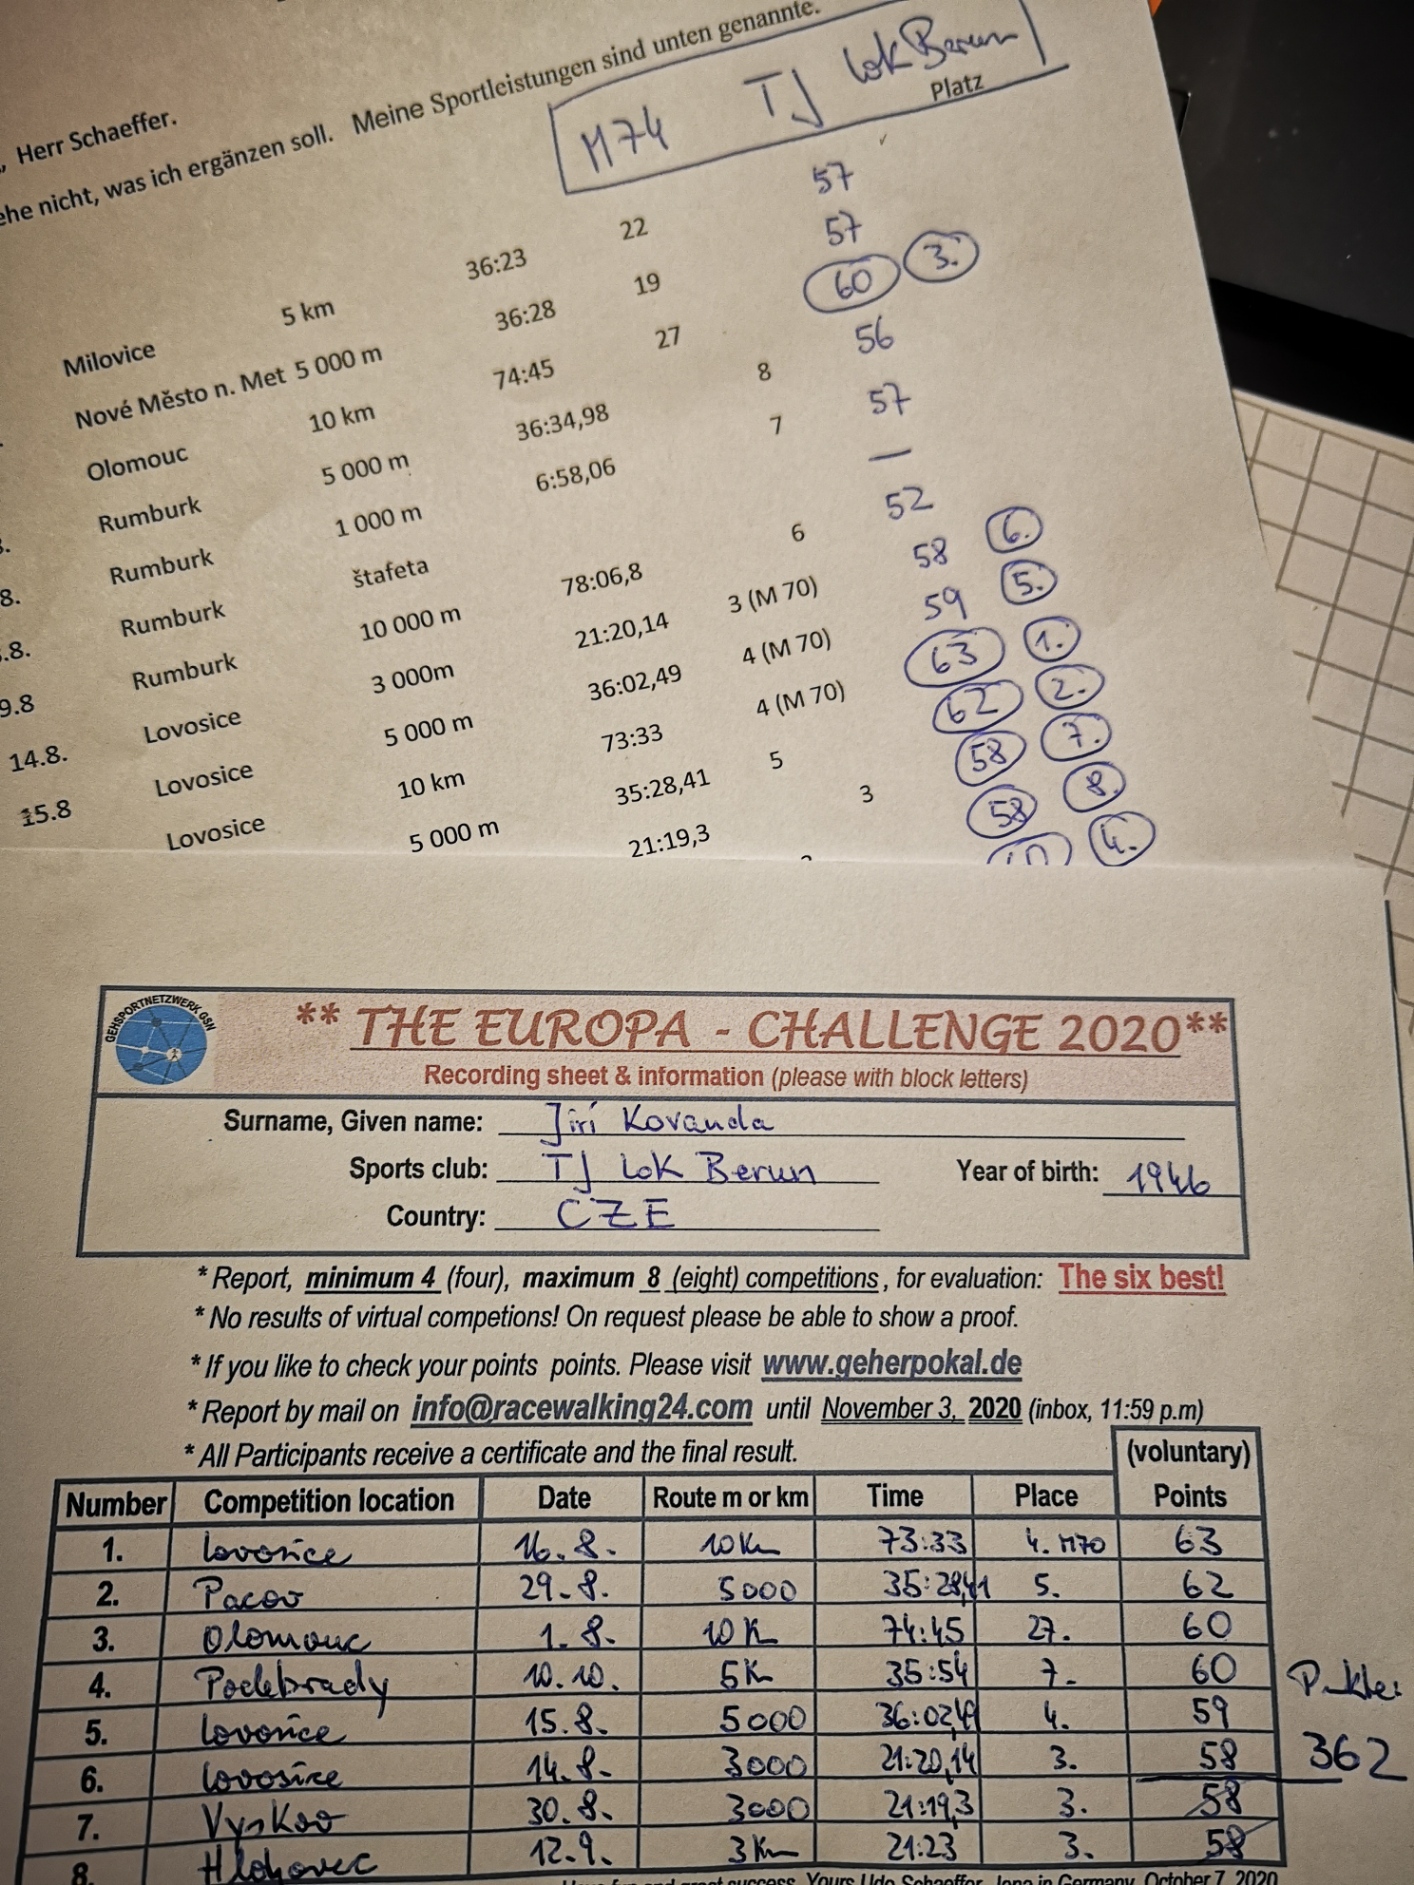 , Herr Schaeffer.
ehe nicht, was ich ergänzen soll. Meine Sportleistungen sind unten genannte.
M74 TJ lok Berun
Platz
Milovice 5 km 36:23 22 57
Nové Město n. Met 5 000 m 36:28 19 57
Olomouc 10 km 74:45 27 60 3.
Rumburk 5 000 m 36:34,98 8 56
Rumburk 1 000 m 6:58,06 7 57
8. Rumburk štafeta —
.8. Rumburk 10 000 m 78:06,8 6 52
9.8 Lovosice 3 000m 21:20,14 3 (M 70) 58 6.
14.8. Lovosice 5 000 m 36:02,49 4 (M 70) 59 5.
15.8 Lovosice 10 km 73:33 4 (M 70) 63 1.
5 000 m 35:28,41 5 62 2.
21:19,3 3 58 7.
58 8.
4.
GEHSPORTNETZWERK GSN
** THE EUROPA - CHALLENGE 2020**
Recording sheet & information (please with block letters)
Surname, Given name: Jirí Kovanda
Sports club: TJ lok Berun Year of birth: 1946
Country: CZE
* Report, minimum 4 (four), maximum 8 (eight) competitions, for evaluation: The six best!
* No results of virtual competions! On request please be able to show a proof.
* If you like to check your points points. Please visit www.geherpokal.de
* Report by mail on info@racewalking24.com until November 3, 2020 (inbox, 11:59 p.m)
* All Participants receive a certificate and the final result.
(voluntary)
Number Competition location Date Route m or km Time Place Points
1. Lovosice 16.8. 10 Km 73:33 4. M70 63
2. Pacov 29.8. 5000 35:28,41 5. 62
3. Olomouc 1.8. 10 K 74:45 27. 60
4. Podebrady 10.10. 5 Km 35:54 7. 60
5. Lovosice 15.8. 5000 36:02,49 4. 59
6. Lovosice 14.8. 3000 21:20,14 3. 58
7. Vyskov 30.8. 3000 21:19,3 3. 58
8. Hlohovec 12.9. 3 Km 21:23 3. 58
Punkte:
362
Yours Udo Schaeffer, Jena in Germany, October 7, 2020